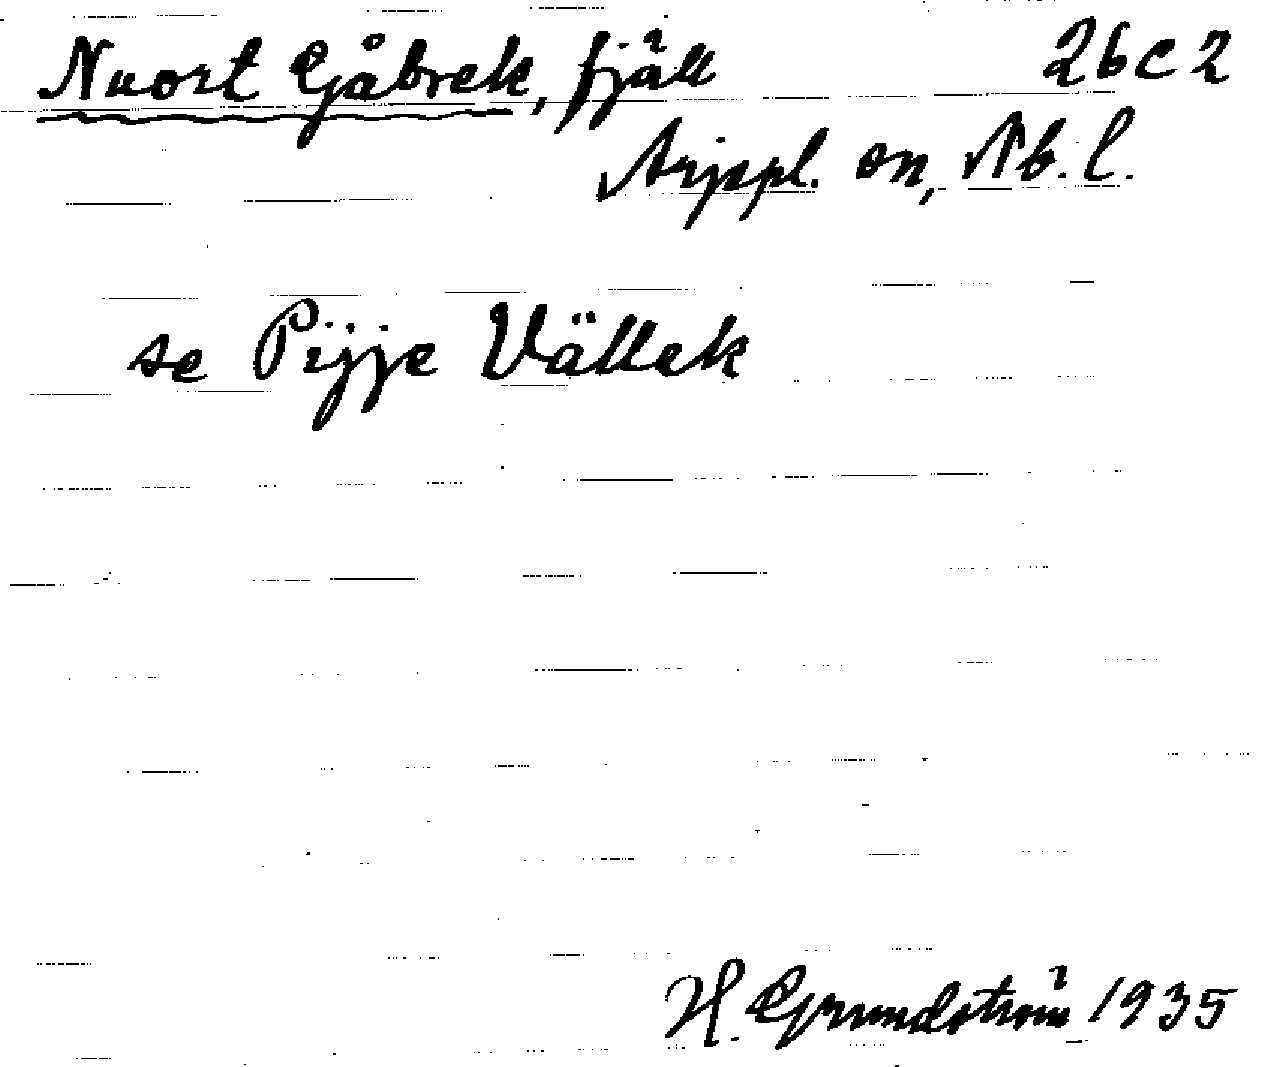 Nuort Gåbrek, fjäll 26c2
Arjepl. sn, Nb. l.
se Pijje Vällek
H. Grundström 1935